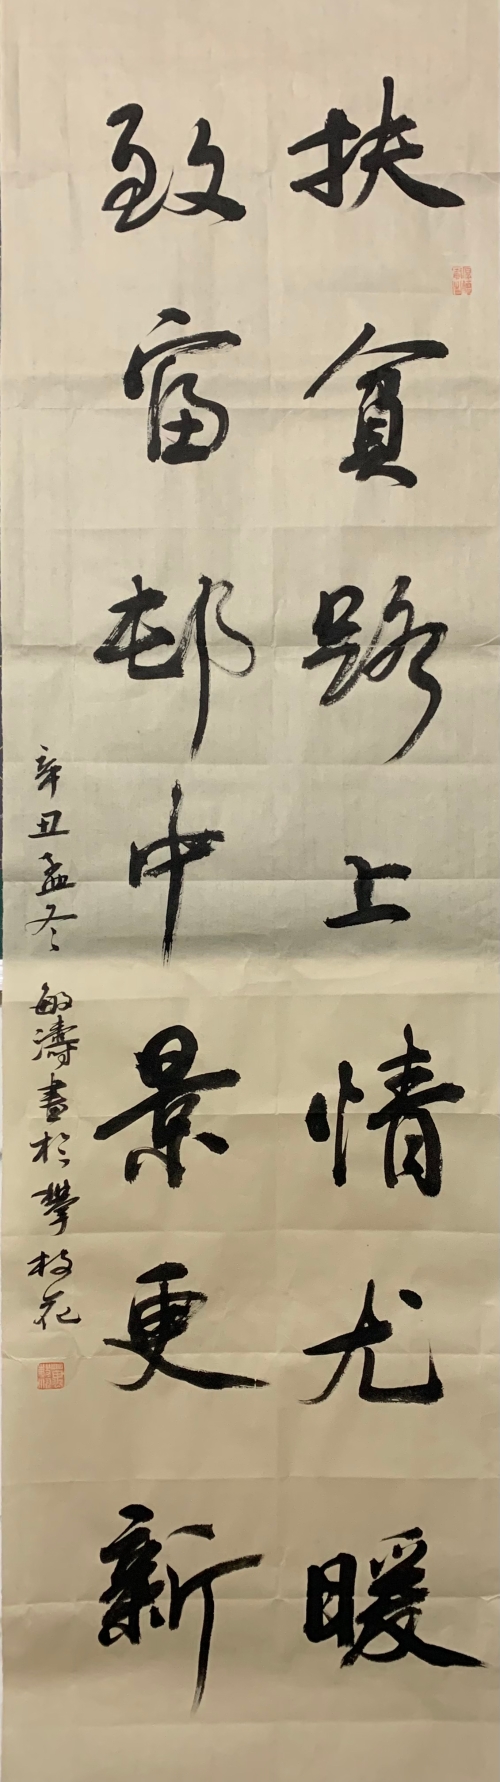 扶貧路上情尤暖
致富邨中景更新
辛丑孟冬 敏濤書於攀枝花